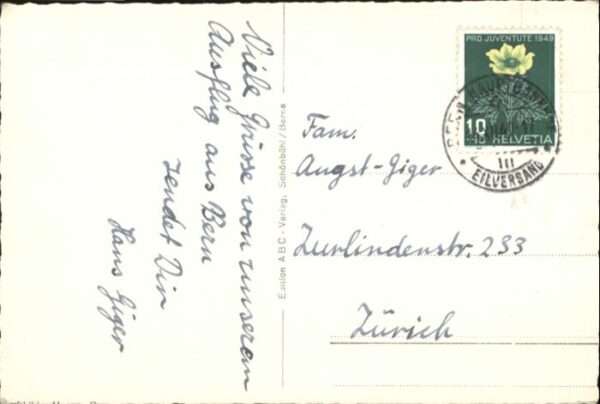 Viele Grüsse von unserem
Ausflug aus Bern
sendet Dir
Hans Giger
Edition ABC-Verlag, Schönbühl/Berne
PRO JUVENTUTE 1949
10
HELVETIA
BERN
III
EILVERSAND
Fam.
Augst-Giger
Zurlindenstr. 233
Zürich